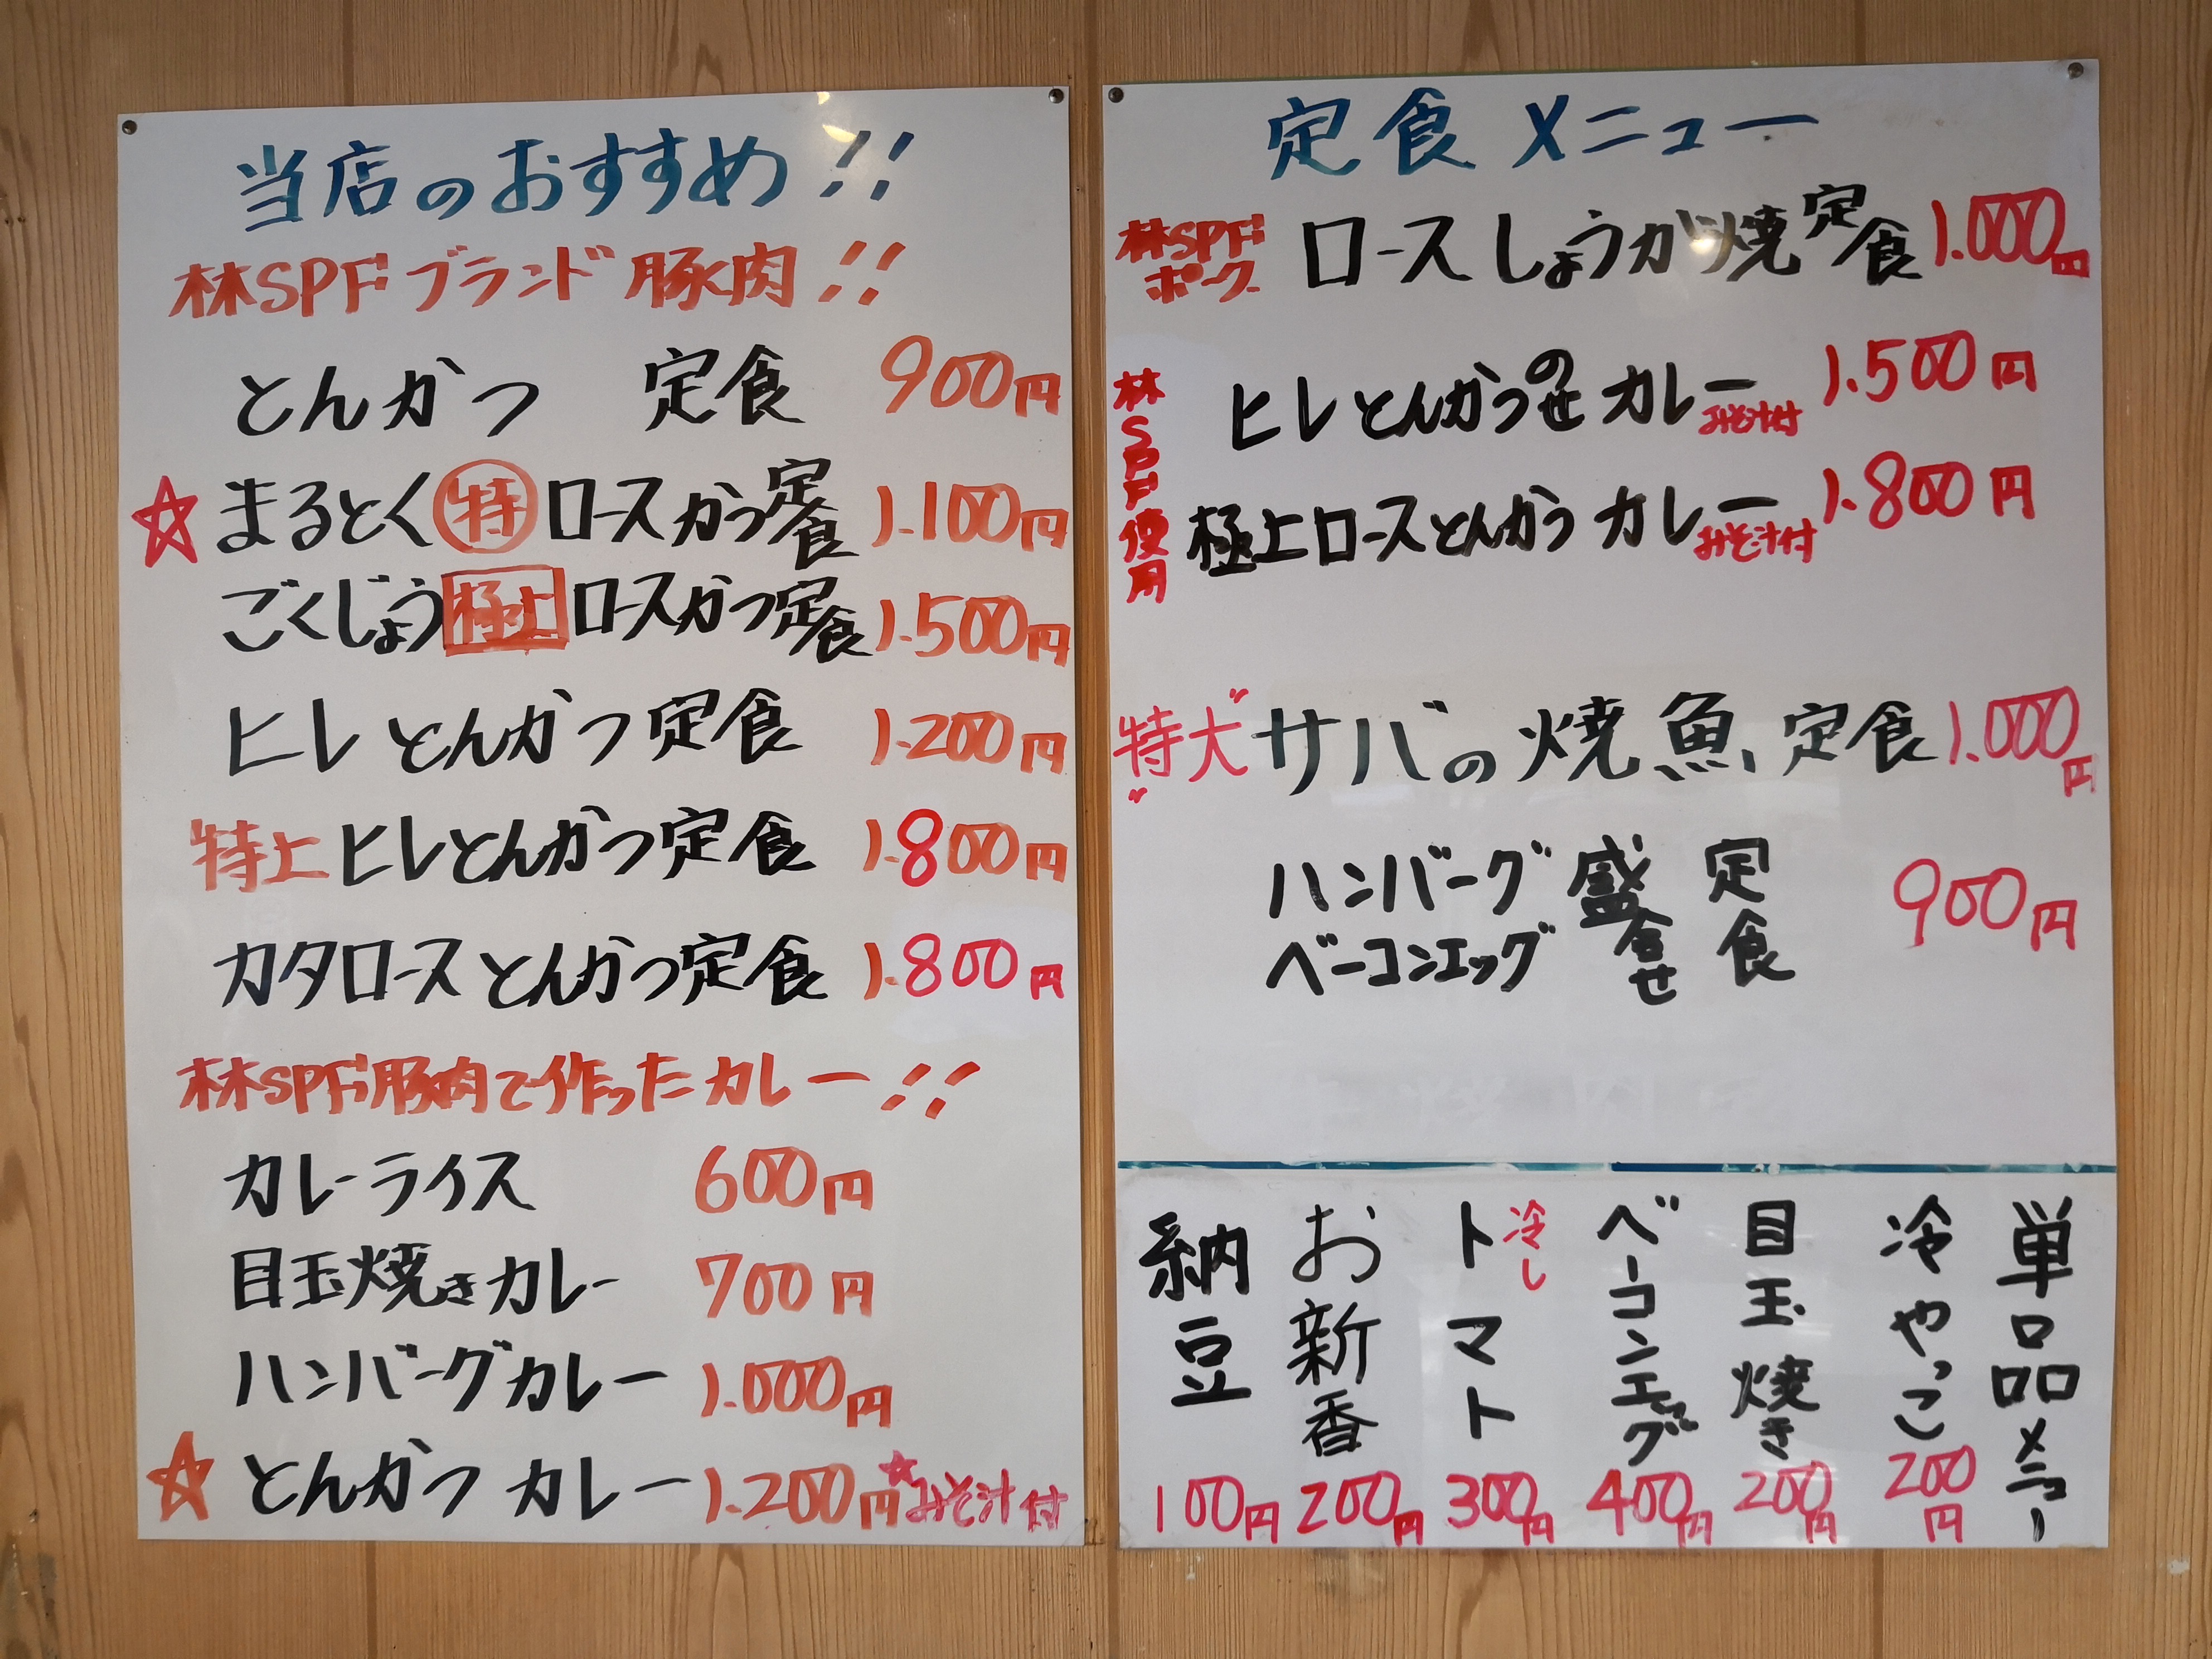 当店のおすすめ!!
林SPFブランド豚肉!!
とんかつ 定食 900円
☆まるとく特ロースかつ定食 1.100円
ごくじょう極上ロースかつ定食 1.500円
ヒレとんかつ定食 1.200円
特上ヒレとんかつ定食 1.800円
カタロースとんかつ定食 1.800円
林SPF豚肉で作ったカレー!!
カレーライス 600円
目玉焼きカレー 700円
ハンバーグカレー 1.000円
☆とんかつカレー 1.200円 ☆みそ汁付
定食メニュー
林SPFポーク ロースしょうが焼定食 1.000円
林SPF使用
ヒレとんかつのせカレー みそ汁付 1.500円
極上ロースとんかつカレー みそ汁付 1.800円
"特大"サバの焼魚定食 1.000円
ハンバーグ
ベーコンエッグ 盛合せ 定食 900円
単品メニュー
冷やっこ 200円
目玉焼き 200円
ベーコンエッグ 400円
冷しトマト 300円
お新香 200円
納豆 100円